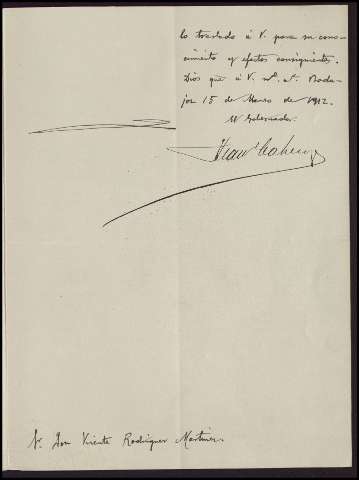 lo traslado á V. para su cono-
cimiento y efectos consiguientes.
Dios gue á V. ms. as. Bada-
joz 15 de Marzo de 1912.
El Gobernador
Sr. Don Vicente Rodriguez Martinez